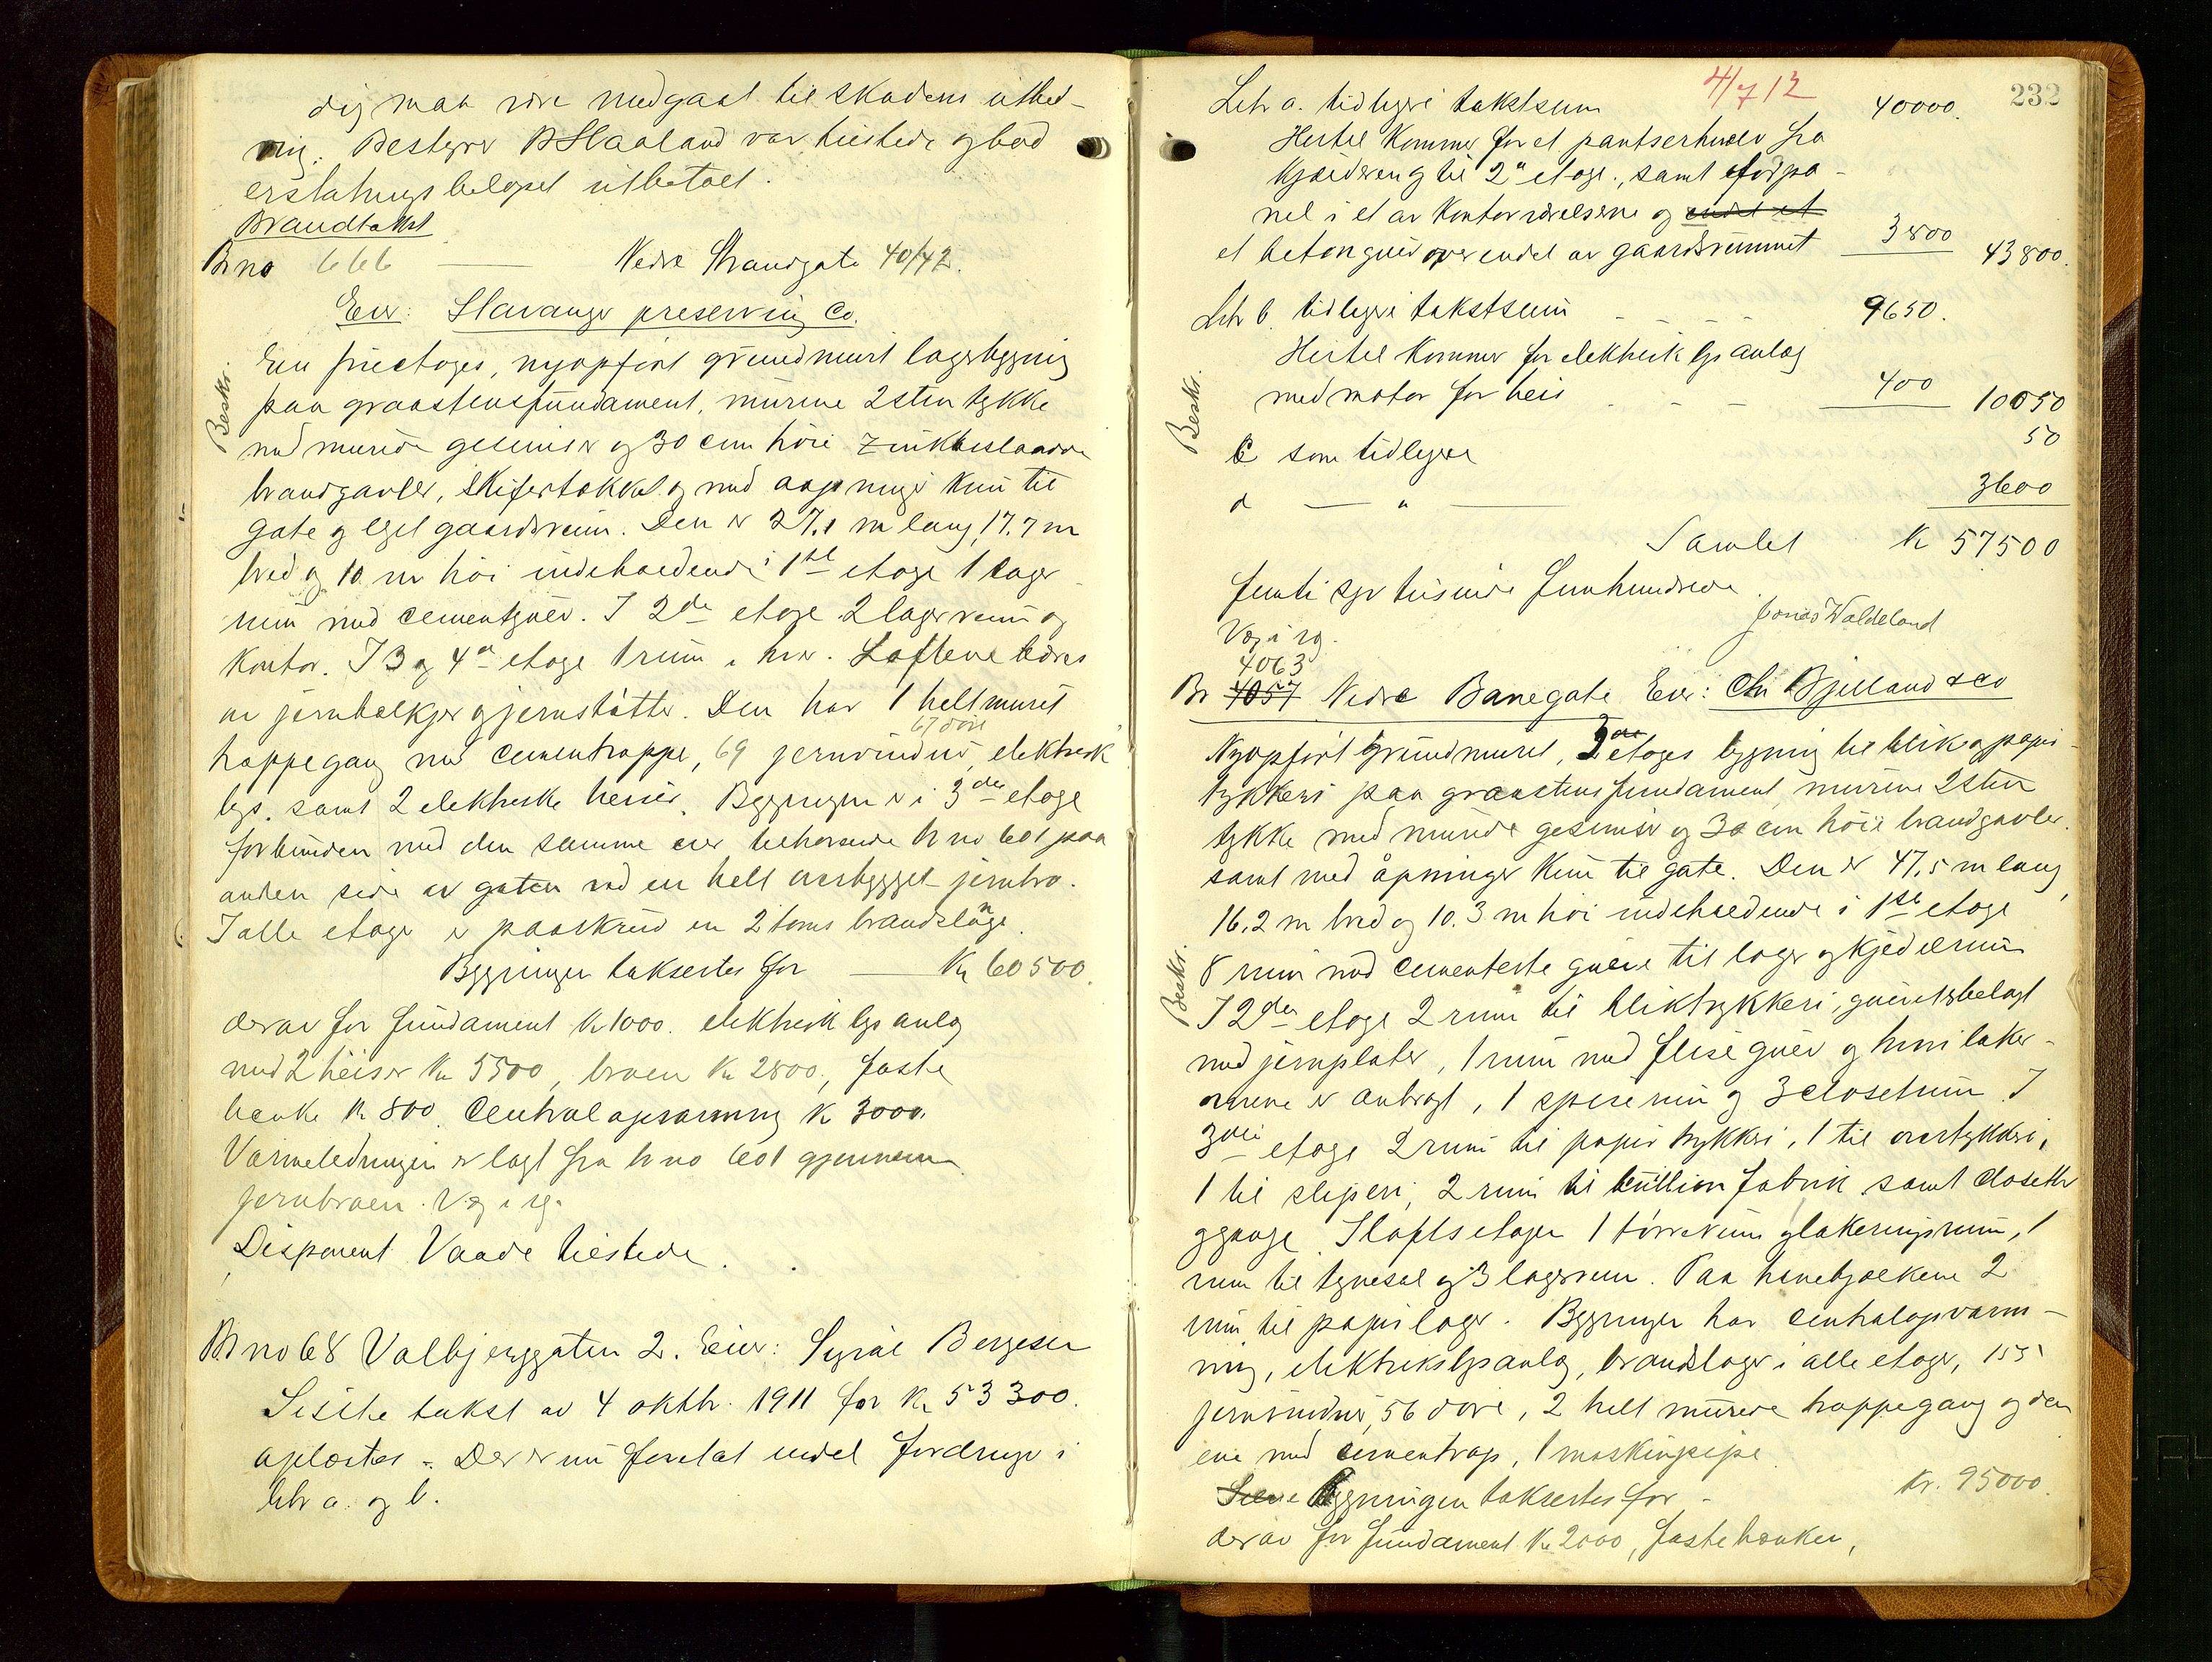 dig maa være medgaat til skadens utbed-
ring. Bestyrer B Haaland var tilstede og bad
erstatningsbeløpet utbetalt.
Brandtakst
Br no 666 — Nedre Strandgate 40/42.
Eier: Stavanger preserving Co.
Beskr.
En fireetages, nyopført grundmuret lagerbygning
paa graastensfundament, murene 2 sten tykke
med murede gesimser og 30 cm høie zinkbeslaade
brandgavler, skifertækket og med aapninger kun til
gate og eget gaardsrum. Den er 27.1 m lang, 17.7 m
bred og 10 m høi indeholdende i 1ste etage 1 lager
rum med cementgulv. I 2den etage 2 lagerrum og
kontor. I 3 og 4de etage 1 rum i hver. Lofterne bæres
av jernbælkjer og jernstøtter. Den har 1 helt muret
67 døre
trappegang med cementtrappe, 69 jernvinduer, elektrisk
lys, samt 2 elektriske heiser. Bygningen er i 3die etage
forbunden med den samme eier tilhørende br no 601 paa
anden side av gaten med en helt overbygget jernbro.
I alle etager er paaskrud en 2 toms brandslange.
Bygningen taksertes for — Kr 60500.
derav for fundament Kr 1000. elektrisk lys anlæg
med 2 heiser Kr 5500, broen Kr 2800, faste
bænke Kr 800. Centralopvarming Kr 3000.
Varmeledningen er lagt fra br no 601 gjennem
jernbroen. V. og i rg.
Disponent Vaade tilstede.
Br no 68 Valbjerggaten 2. Eier: Sigval Bergesen
Sidste takst av 4 oktbr. 1911 for Kr 53300.
oplæstes. Der er nu foretat endel fordringer i
litr a. og b.
232
4/7 12
Litr a. tidligere takstsum 40000.
Hertil kommer for et pantserhvælv fra
kjælderen og til 2den etage, samt
nel i et av kontorværelserne og endel et
et betongulv over endel av gaardsrummet 3800 43800.
Litr b. tidligere takstsum - - - - 9650.
Beskr.
Hertil kommer for elektrisk lys anlæg
med motor for heis - - - 400 10050
c som tidligere 50
d — " — 3600
Samlet Kr 57500
femti syv tusinde femhundrede
Jonas Waldeland
V og i rg.
4063
Br 4057 Nedre Banegate Eier: Chr Bjelland & co
Nyopført grundmuret, 3die etages bygning til blik og papir-
trykkeri paa graastensfundament, murene 2 sten
tykke med murede gesimser og 30 cm høie brandgavler.
samt med åpninger kun til gate. Den er 47.5 m lang,
16.2 m bred og 10.3 m høi indeholdende i 1ste etage
Beskr.
8 rum med cementerte gulve til lager og kjedelrum
I 2den etage 2 rum til bliktrykkeri, gulvet belagt
med jernplater, 1 rum med flisegulv og hvori laker-
ovnene er anbragt, 1 spiserum og 3 closetrum. I
3die etage 2 rum til papir trykkeri, 1 til overtrykkeri,
1 til sliperi, 2 rum til bullion fabrik samt closetter
og gange. I loftsetagen 1 tørrerum og lakeringsrum, 1
rum til tegnesal og 3 lagerrum. Paa hanebjælkene 2
rum til papirlager. Bygningen har centralopvarm-
ning, elektriskslysanlæg, brandslager i alle etager, 155
jernvinduer, 56 døre, 2 helt murede trappegang og den
ene med cementtrap, 1 maskinpipe
Selve Bygningen taksertes for - Kr. 95000.
derav for fundament Kr 2000, faste bænker,